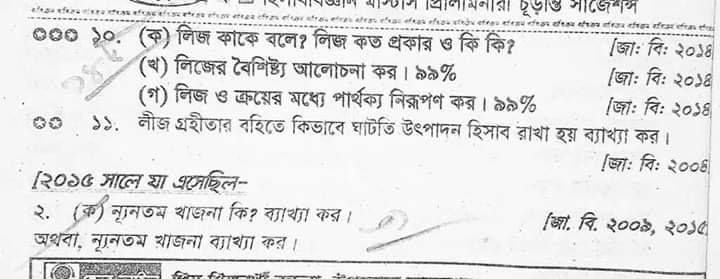 হিসাববিজ্ঞান মাস্টার্স প্রিলিমিনারী চূড়ান্ত সাজেশন্স
১০. (ক) লিজ কাকে বলে? লিজ কত প্রকার ও কি কি? [জা: বি: ২০১৪
(খ) লিজের বৈশিষ্ট্য আলোচনা কর। ৯৯% [জা: বি: ২০১৪
(গ) লিজ ও ক্রয়ের মধ্যে পার্থক্য নিরূপণ কর। ৯৯% [জা: বি: ২০১৪
১১. লীজ গ্রহীতার বহিতে কিভাবে ঘাটতি উৎপাদন হিসাব রাখা হয় ব্যাখ্যা কর।
[জা: বি: ২০০৪
[২০১৫ সালে যা এসেছিল-
২. (ক) ন্যূনতম খাজনা কি? ব্যাখ্যা কর। [জা. বি. ২০০৯, ২০১৫
অথবা, ন্যূনতম খাজনা ব্যাখ্যা কর।